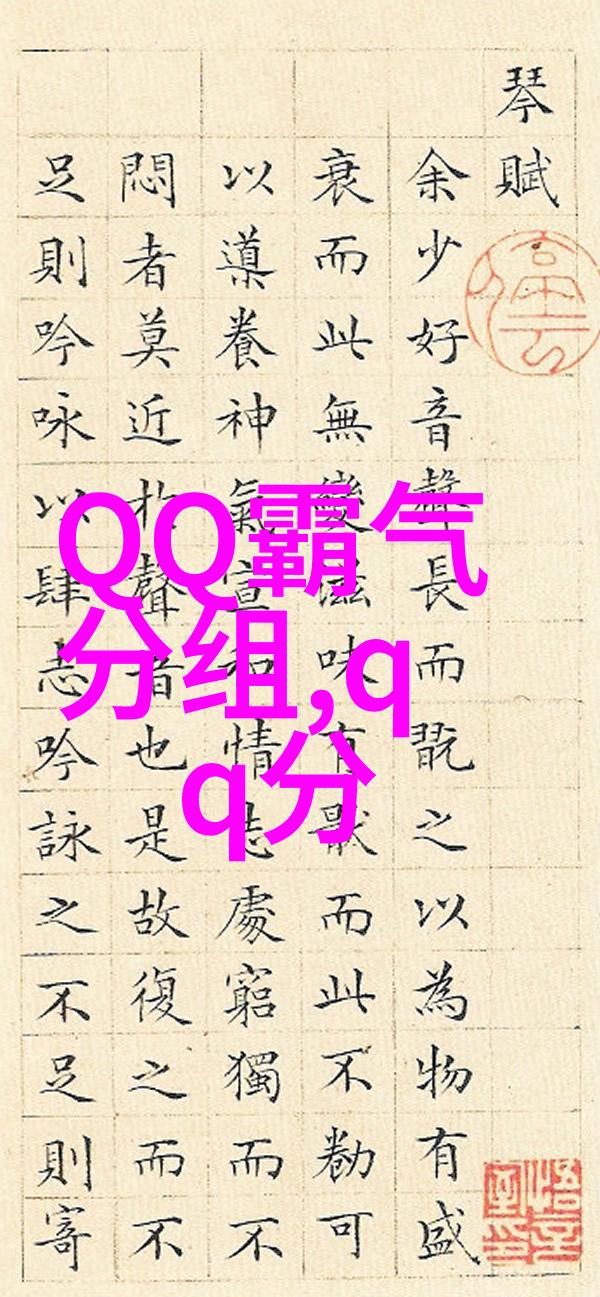 琴賦
余少好音聲長而翫之以為物有盛
衰而此無變滋味有猒而此不勌可
以導養神氣宣和情志處窮獨而不
悶者莫近於聲音也是故復之而不
足則吟咏以肆志吟詠之不足則寄
QQ霸气
分组,q
q分